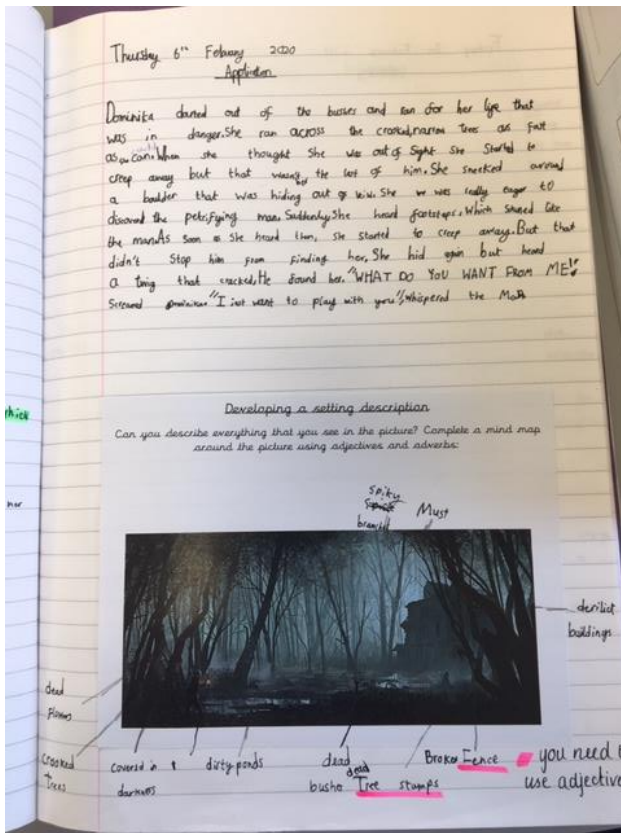 Thursday 6th Febuary 2020
Application
Dominika darted out of the busses and ran for her life that
was in danger. She ran across the crooked, narrow trees as fast
as can. When she thought She was out of Sight She Started to
creep away but that wasn't the last of him. She sneeked around
a boulder that was hiding out of She was really eager to
the man. Suddenly, She heard footsteps, Which like
the man. As Soon as She heard then, she started to creep away. But that
didn't Stop him from finding her, She hid again but heard
a twig that cracked, He found her. "WHAT DO YOU WANT FROM ME!"
Screamed "I just want to play with you", whispered the Man
Developing a setting description
Can you describe everything that you see in the picture? Complete a mind map
around the picture using adjectives and adverbs:
spiky
branches
Must
derilict
buildings
dead
crooked
Trees
covered in
darkness
dirty ponds
dead
dead
bushe Tree stumps
Broken Fence
you need t
use adjective